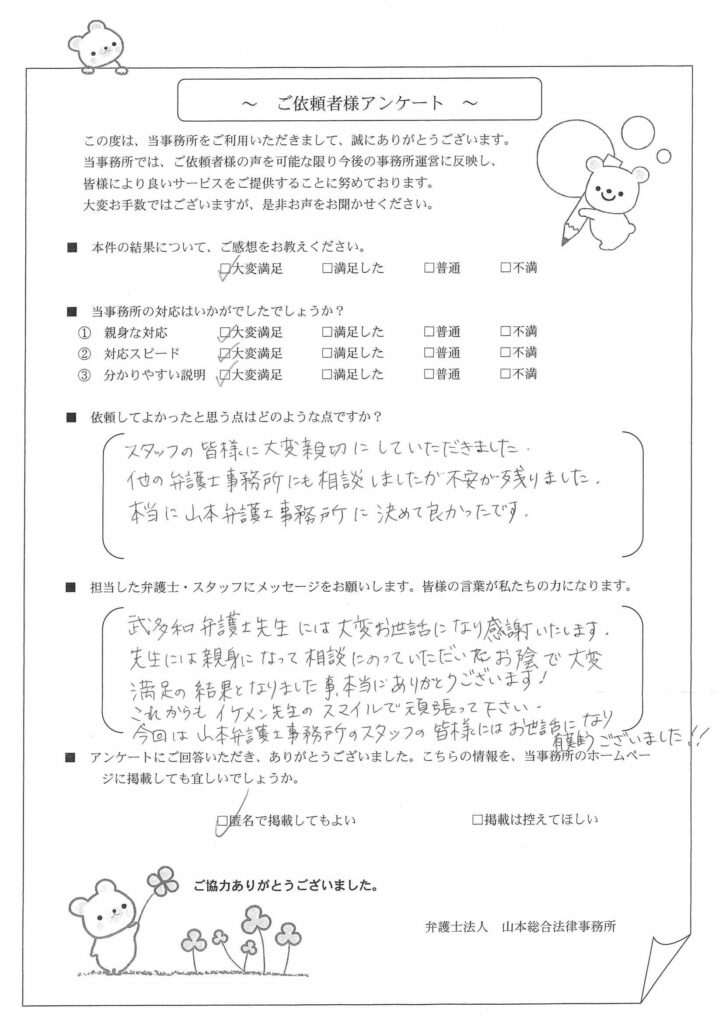 ～ ご依頼者様アンケート ～
この度は、当事務所をご利用いただきまして、誠にありがとうございます。
当事務所では、ご依頼者様の声を可能な限り今後の事務所運営に反映し、
皆様により良いサービスをご提供することに努めております。
大変お手数ではございますが、是非お声をお聞かせください。
■ 本件の結果について、ご感想をお教えください。
☑大変満足 □満足した □普通 □不満
■ 当事務所の対応はいかがでしたでしょうか？
① 親身な対応 ☑大変満足 □満足した □普通 □不満
② 対応スピード ☑大変満足 □満足した □普通 □不満
③ 分かりやすい説明 ☑大変満足 □満足した □普通 □不満
■ 依頼してよかったと思う点はどのような点ですか？
スタッフの皆様に大変親切にしていただきました.
他の弁護士事務所にも相談しましたが不安が残りました.
本当に山本弁護士事務所に決めて良かったです.
■ 担当した弁護士・スタッフにメッセージをお願いします。皆様の言葉が私たちの力になります。
武多和弁護士先生には大変お世話になり感謝いたします.
先生には親身になって相談にのっていただいたお陰で大変
満足の結果となりました事、本当にありがとうございます!
これからもイケメン先生のスマイルで頑張って下さい.
今回は山本弁護士事務所のスタッフの皆様にはお世話になり
有難うございました!!
■ アンケートにご回答いただき、ありがとうございました。こちらの情報を、当事務所のホームペー
ジに掲載しても宜しいでしょうか。
☑匿名で掲載してもよい □掲載は控えてほしい
ご協力ありがとうございました。
弁護士法人 山本総合法律事務所